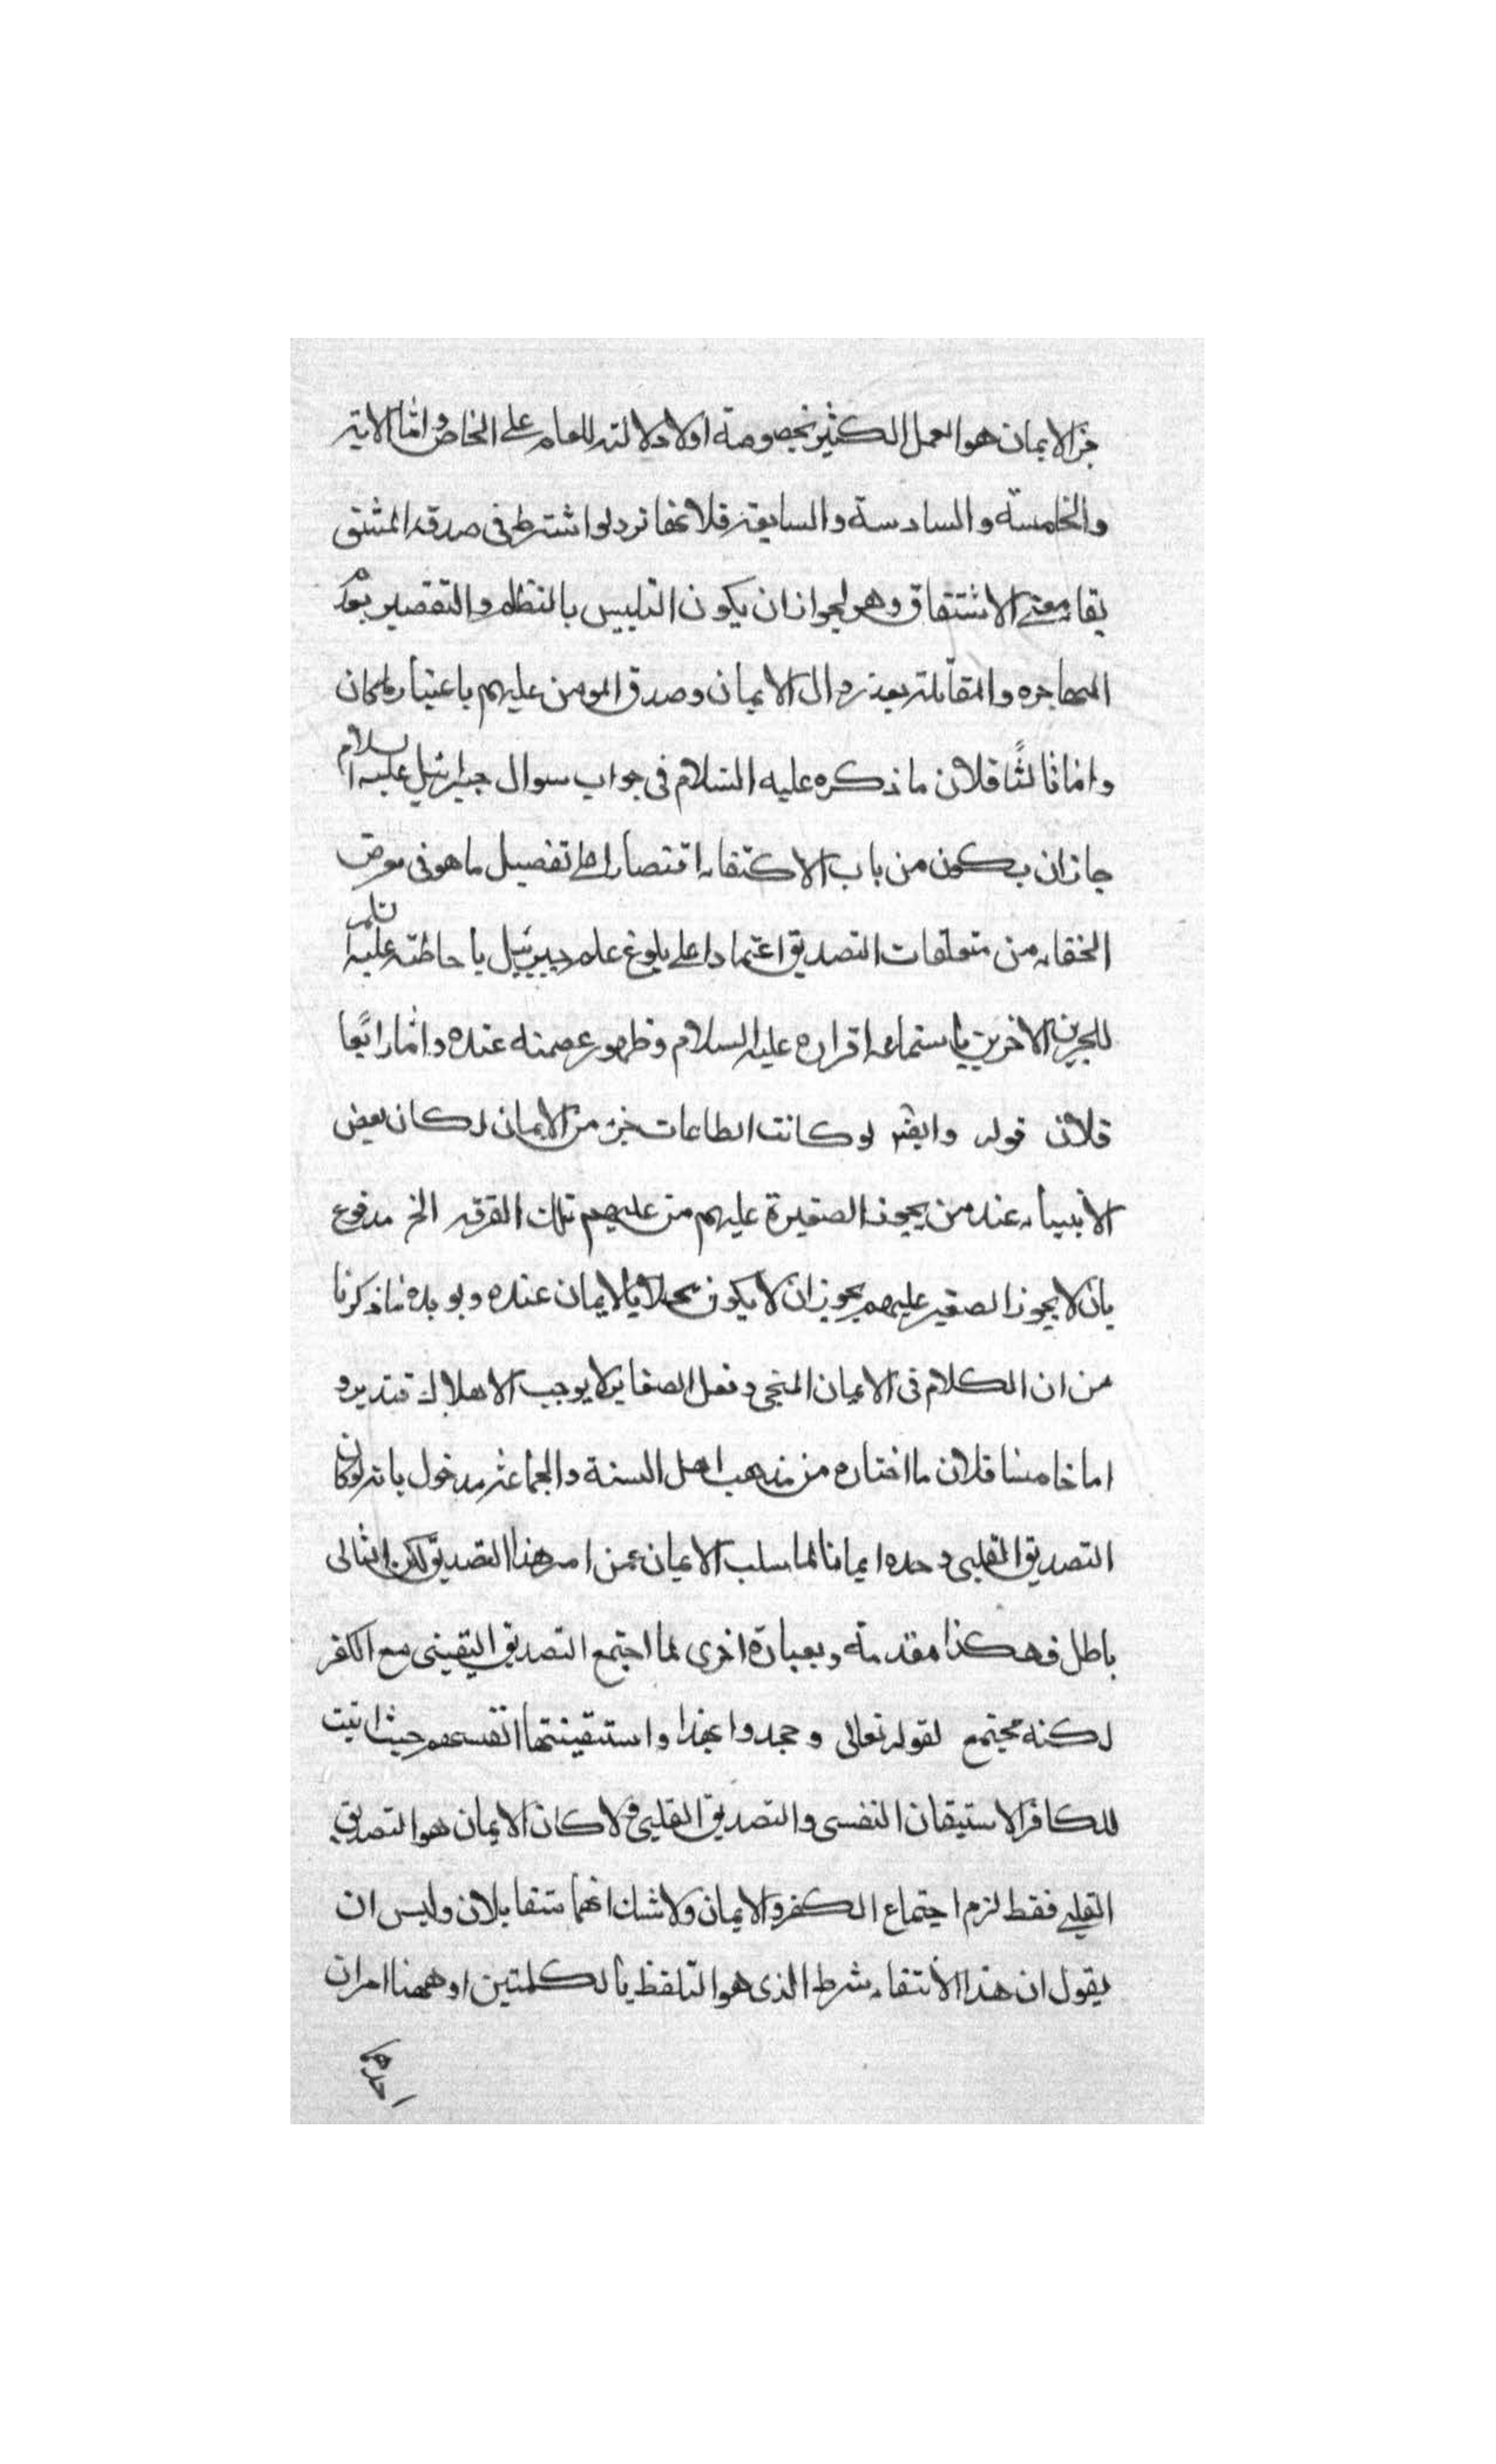 جزء الايمان هو العمل الكثير بخصوصة اولا دلالته للعام على الخاص واما الاية
والخامسة والسادسة والسابقة فلانها ترد لو اشترط فى صدقه المشتق
بقاء معنى الاشتقاق وهو لجواز ان يكون التلبيس بالنظلم والتقصير بعد
المهاجره والمقاتلة بعد زوال الايمان وصدق المومن عليهم باعتبار ماكان
واما ثالثًا فلان ما ذكره عليه السّلام فى جواب سوال جبرائيل عليه السلام
جاز ان يكون من باب الاكتفاء اقتصارا على تفصيل ما هو فى معرض
الخفاء من متعلقات التصديق اعتمادا على بلوغ علم جبرئيل باحاطته عليه السلام
للجزين الاخرين باستماعه اقراره عليه السلام وظهور عصمته عنده واما رابعًا
فلان قوله وايضا لو كانت الطاعات جزء من الايمان لكان بعض
الأنبياء عند من يجوز الصغيرة عليهم من عليهم تلك الفرقه الخ مدفوع
بان لا يجوز الصغير عليهم يجوز ان لا يكون مخلا بالايمان عنده ويويده ما ذكرنا
من ان الكلام فى الايمان المنجى وفعل الصغاير لا يوجب الاهلاك فتدبر و
اما خامسا فلان ما اختاره من مذهب اهل السنة والجماعة مدخول بانه لو كان
التصديق القلبى وحده ايمانا لما سلب الايمان عمن امر هذا التصديق لكن التالى
باطل فهكذا مقدمته وبعبارة اخرى لما اجتمع التصديق اليقينى مع الكفر
لكنه مجتمع لقوله تعالى وجحدوا بهذا واستيقنتها انفسهم حيث اثبت
للكافر الاستيقان النفسى والتصديق القلبى ولا كان الايمان هو التصديق
القلبى فقط لزم اجتماع الكفر والايمان ولا شك انهما متقابلان وليس ان
يقول ان هذا الأنتفاء شرط الذى هو التلفظ بالكلمتين او ههنا امران
احدهما